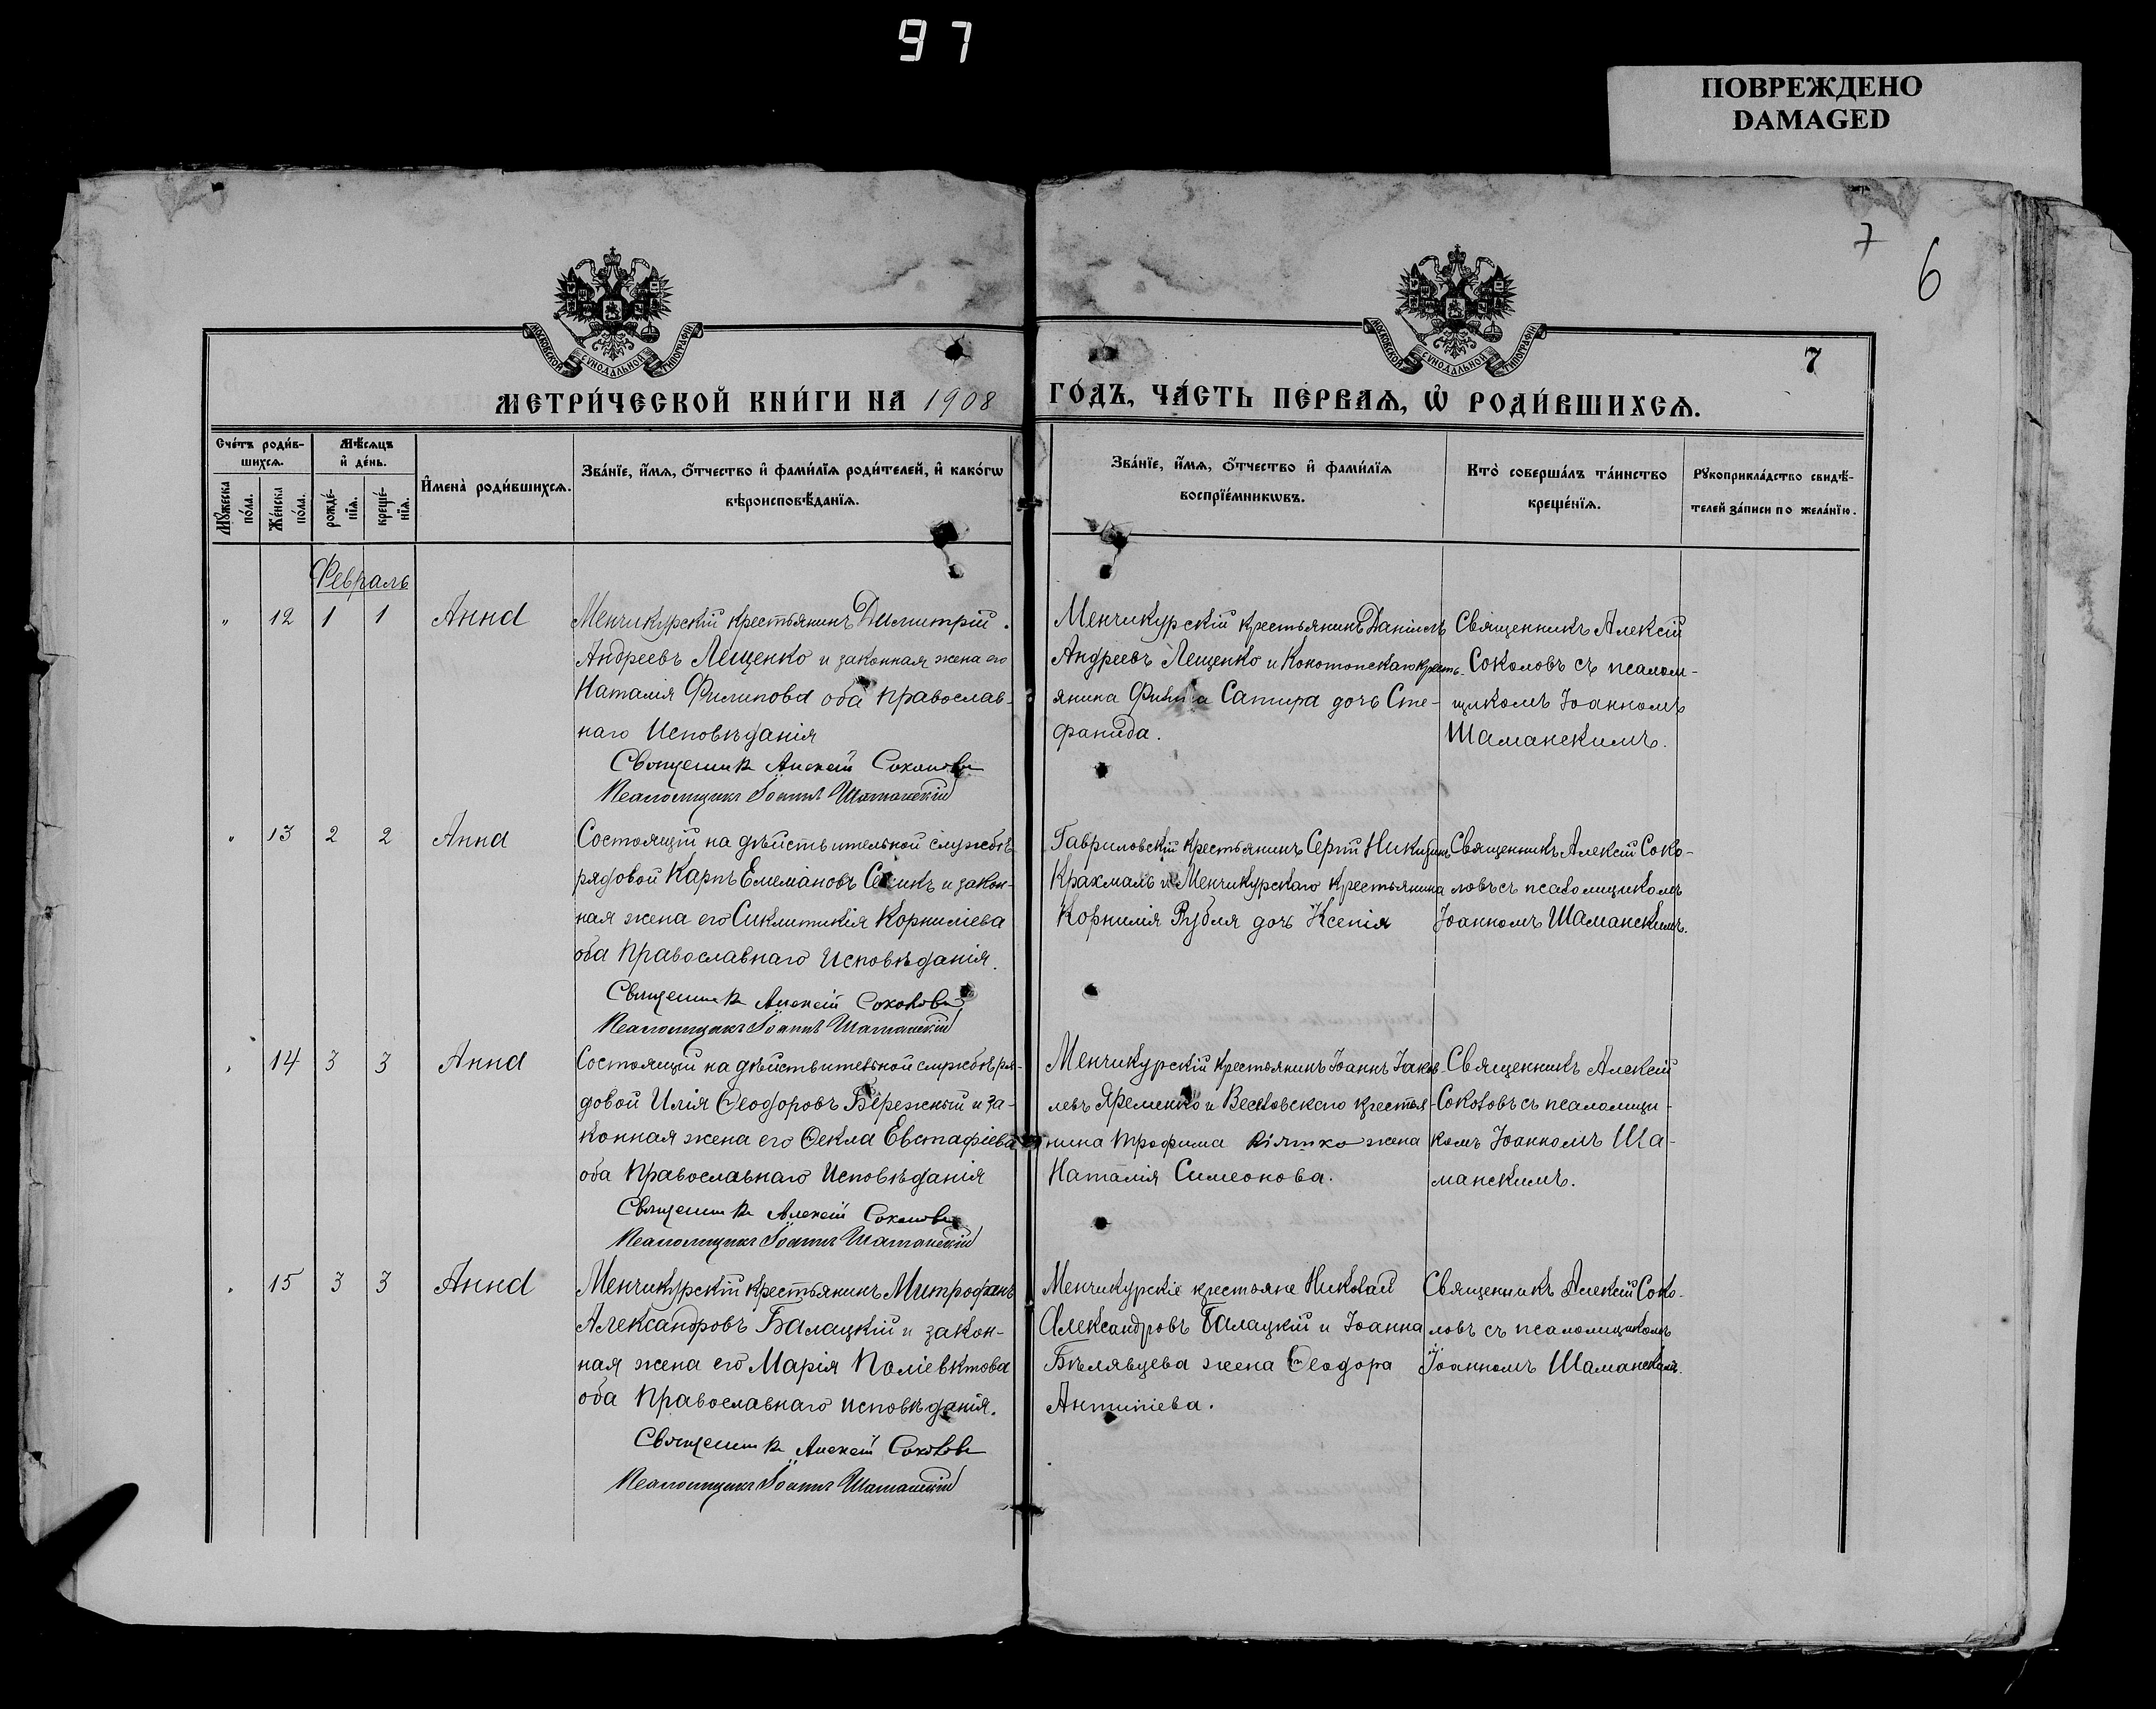 97
ПОВРЕЖДЕНО
DAMAGED
7
6
МОСКОВСКОЙ СѴНОДАЛЬНОЙ ТИПОГРАФІИ
МОСКОВСКОЙ СѴНОДАЛЬНОЙ ТИПОГРАФІИ
7
МЕТРИ́ЧЕСКОЙ КНИ́ГИ НА 1908
ГО́ДЪ, ЧА́СТЬ ПЕ́РВАѦ, Ѡ҆ РОДИ́ВШИХСѦ.
Сче́тъ роди́в-
шихсѧ.
Мѣ́сѧцъ
и҆ де́нь.
Мꙋ́жеска
по́ла.
Же́нска
по́ла.
рожде́-
нїѧ.
креще́-
нїѧ.
И҆мена̀ роди́вшихсѧ.
Зва́нїе, и҆́мѧ, ѻ҆́тчество и҆ фами́лїѧ роди́телей, и҆ како́гѡ
вѣроисповѣ́данїѧ.
Зва́нїе, и҆́мѧ, ѻ҆́тчество и҆ фами́лїѧ
воспрїе́мникѡвъ.
Кто̀ соверша́лъ та́инство
креще́нїѧ.
Рꙋкоприкла́дство свидѣ́-
телей за́писи по жела́нїю.
Февраль
" 12 1 1 Анна
Менчикурскій крестьянинъ Димитрій
Андреевъ Лещенко и законная жена его
Наталія Филипова оба православ-
наго Исповѣданія
Священникъ Алексій Соколовъ
Псаломщикъ Іоаннъ Шаманскій
Менчикурскій крестьянинъ Даніилъ
Андреевъ Лещенко и Конотопскаго кресть-
янина Сатира дочь Сте-
фанида.
Священникъ Алексій
Соколовъ съ псалом-
щикомъ Іоанномъ
Шаманскимъ.
" 13 2 2 Анна
Состоящій на дѣйствительной службѣ
рядовой Карпъ Емеліановъ и закон-
ная жена его Сиклитикія Корниліева
оба Православнаго Исповѣданія.
Священникъ Алексій Соколовъ
Псаломщикъ Іоаннъ Шаманскій
Гавриловскій крестьянинъ Сергій Никитинъ
Крахмаль и Менчикурскаго крестьянина
Корнилія Рубля дочь Ксенія
Священникъ Алексій Соко-
ловъ съ псаломщикомъ
Іоанномъ Шаманскимъ.
" 14 3 3 Анна
Состоящій на дѣйствительной службѣ ря-
довой Илія Ѳеодоровъ Бережный и за-
конная жена его Ѳекла Евстафіева
оба Православнаго Исповѣданія
Священникъ Алексій Соколовъ
Псаломщикъ Іоаннъ Шаманскій
Менчикурскій крестьянинъ Іоаннъ Іаков-
левъ Яременко и Веселовскаго крестья-
нина Трофима жена
Наталія Симеонова.
Священникъ Алексій
Соколовъ съ псаломщи-
комъ Іоанномъ Ша-
манскимъ.
" 15 3 3 Анна
Менчикурскій крестьянинъ Митрофанъ
Александровъ Балацкій и закон-
ная жена его Марія Поліевктова
оба Православнаго исповѣданія.
Священникъ Алексій Соколовъ
Псаломщикъ Іоаннъ Шаманскій
Менчикурскіе крестьяне Николай
Александровъ Балацкій и Іоанна
Бѣлявцева жена Ѳеодора
Антипіева.
Священникъ Алексій Соко-
ловъ съ псаломщикомъ
Іоанномъ Шаманскимъ.